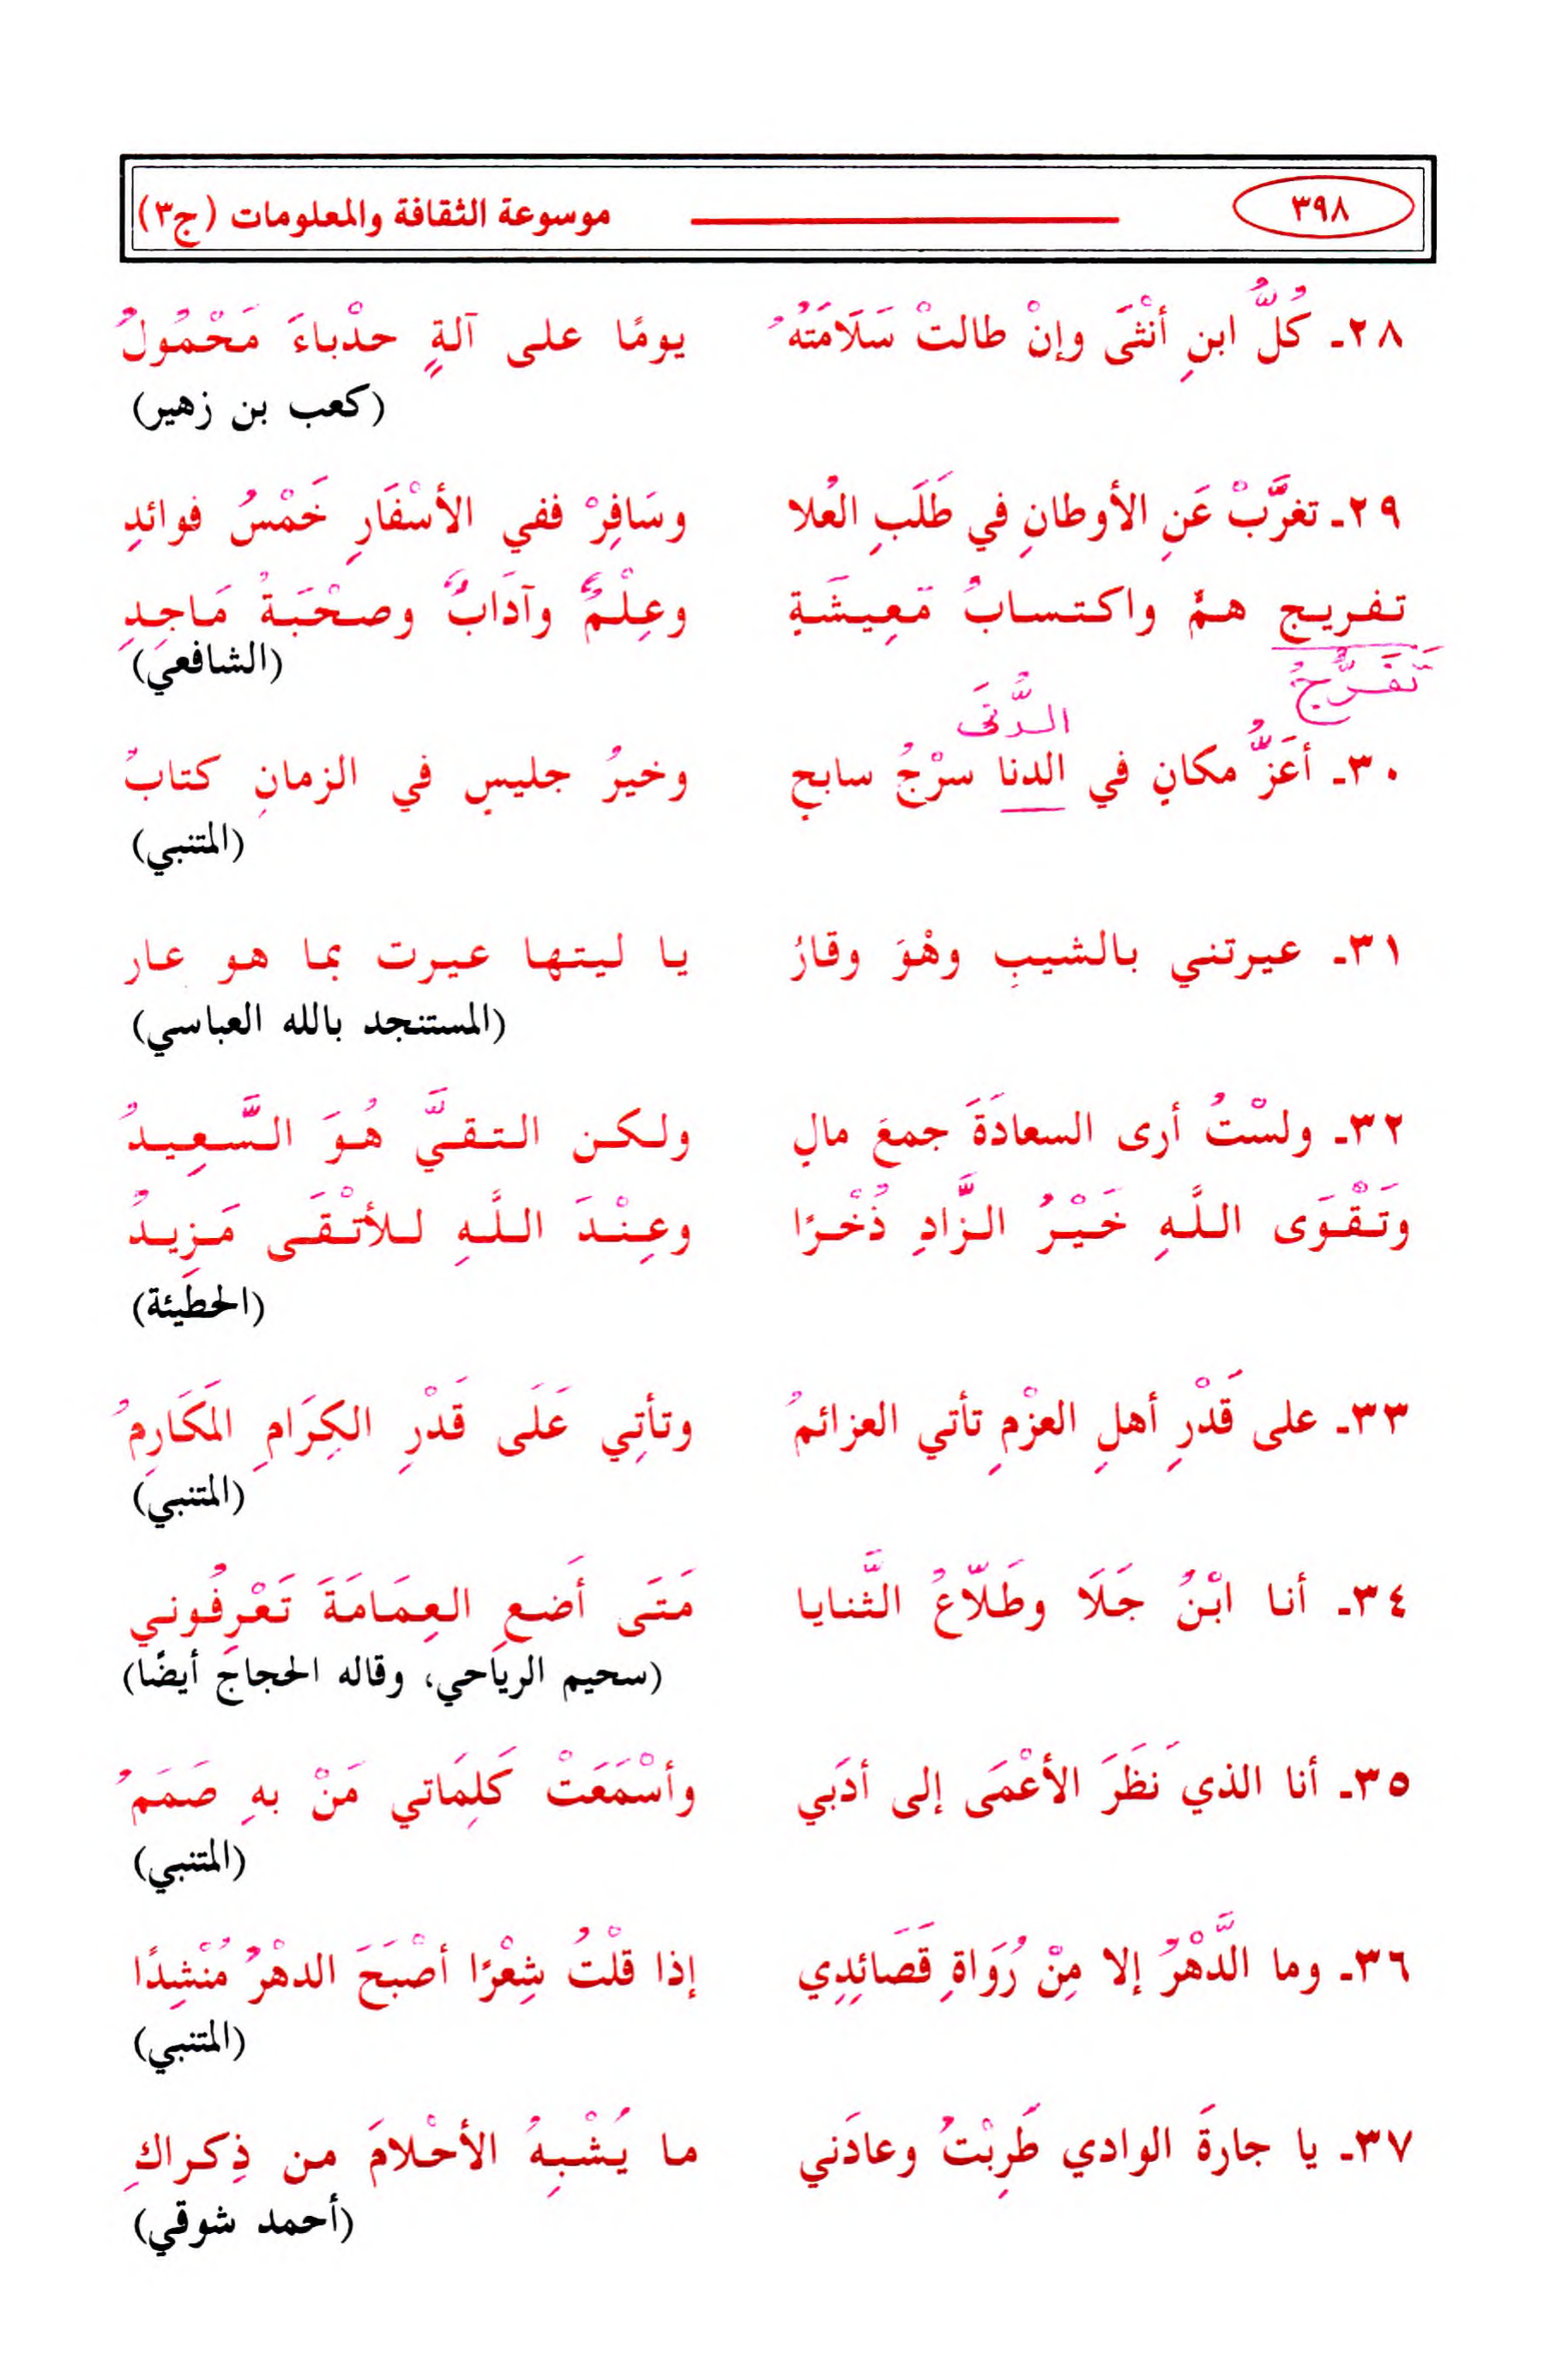 ٣٩٨ موسوعة الثقافة والمعلومات (ج٣)
٢٨ـ كُلُّ ابنِ أنْثَى وإنْ طالتْ سَلَامَتُهُ يومًا على آلةٍ حدْباءَ مَحْمُولُ
(كعب بن زهير)
٢٩ـ تغرَّبْ عَنِ الأوطانِ في طَلَبِ العُلا وسَافِرْ ففي الأسْفَارِ خَمْسُ فوائدِ
تفريج همٍّ واكتسابُ مَعِيشَةٍ وعِلْمٌ وآدَابٌ وصحْبَةُ مَاجِدِ
تَفَرُّجُ
(الشافعي)
الدُّنَى
٣٠ـ أعَزُّ مكانٍ في الدنا سرْجُ سابحٍ وخيرُ جليسٍ في الزمانِ كتابُ
(المتنبي)
٣١ـ عيرتني بالشيبِ وهْوَ وقارُ يا ليتها عيرت بما هو عار
(المستنجد بالله العباسي)
٣٢ـ ولسْتُ أرى السعادَةَ جمعَ مالٍ ولكن التقيَّ هُوَ السَّعِيدُ
وتَقْوَى اللَّهِ خَيْرُ الزَّادِ ذُخْرًا وعِنْدَ اللَّهِ للأتْقَى مَزِيدُ
(الحطيئة)
٣٣ـ على قَدْرِ أهلِ العزْمِ تأتي العزائمُ وتأتِي عَلَى قَدْرِ الكِرَامِ المَكَارِمُ
(المتنبي)
٣٤ـ أنا ابْنُ جَلَا وطَلّاعُ الثَّنايا مَتَى أَضعِ العِمَامَةَ تَعْرِفُوني
(سحيم الرياحي، وقاله الحجاج أيضًا)
٣٥ـ أنا الذي نَظَرَ الأعْمَى إلى أدَبي وأسْمَعَتْ كَلِمَاتي مَنْ بهِ صَمَمُ
(المتنبي)
٣٦ـ وما الدَّهْرُ إلا مِنْ رُوَاةِ قَصَائِدِي إذا قلْتُ شِعْرًا أصْبَحَ الدهْرُ مُنْشِدًا
(المتنبي)
٣٧ـ يا جارةَ الوادي طَرِبْتُ وعادَني ما يُشْبِهُ الأحْلامَ من ذِكراكِ
(أحمد شوقي)